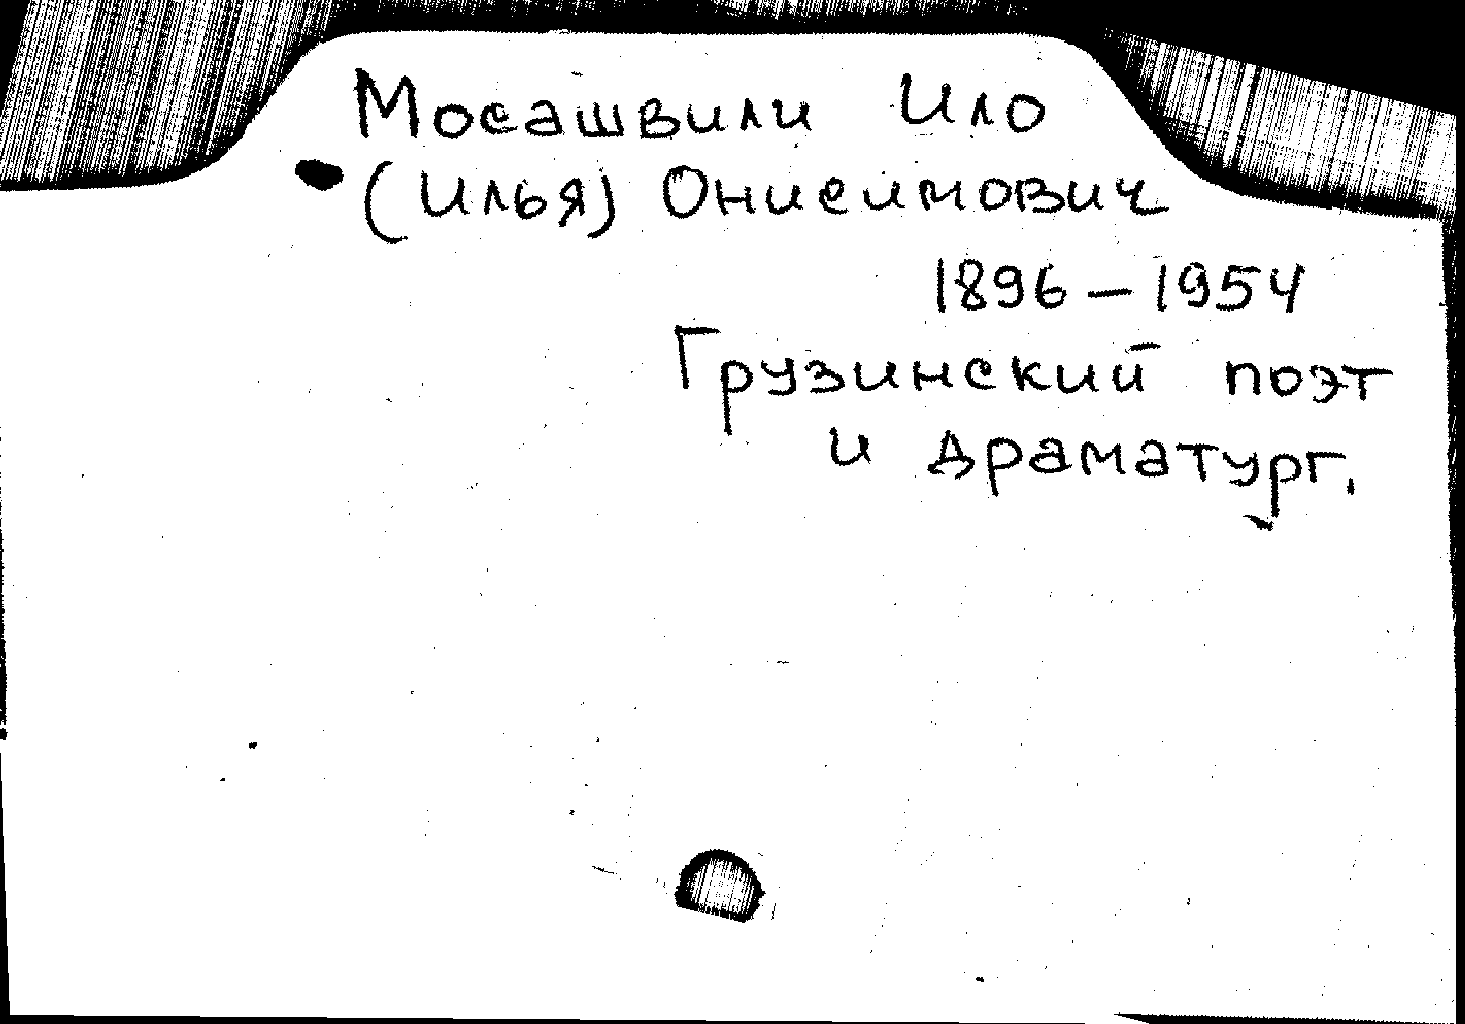 Мосашвили Ило
(Илья) Онисимович
1896 – 1954
Грузинский поэт
и драматург.